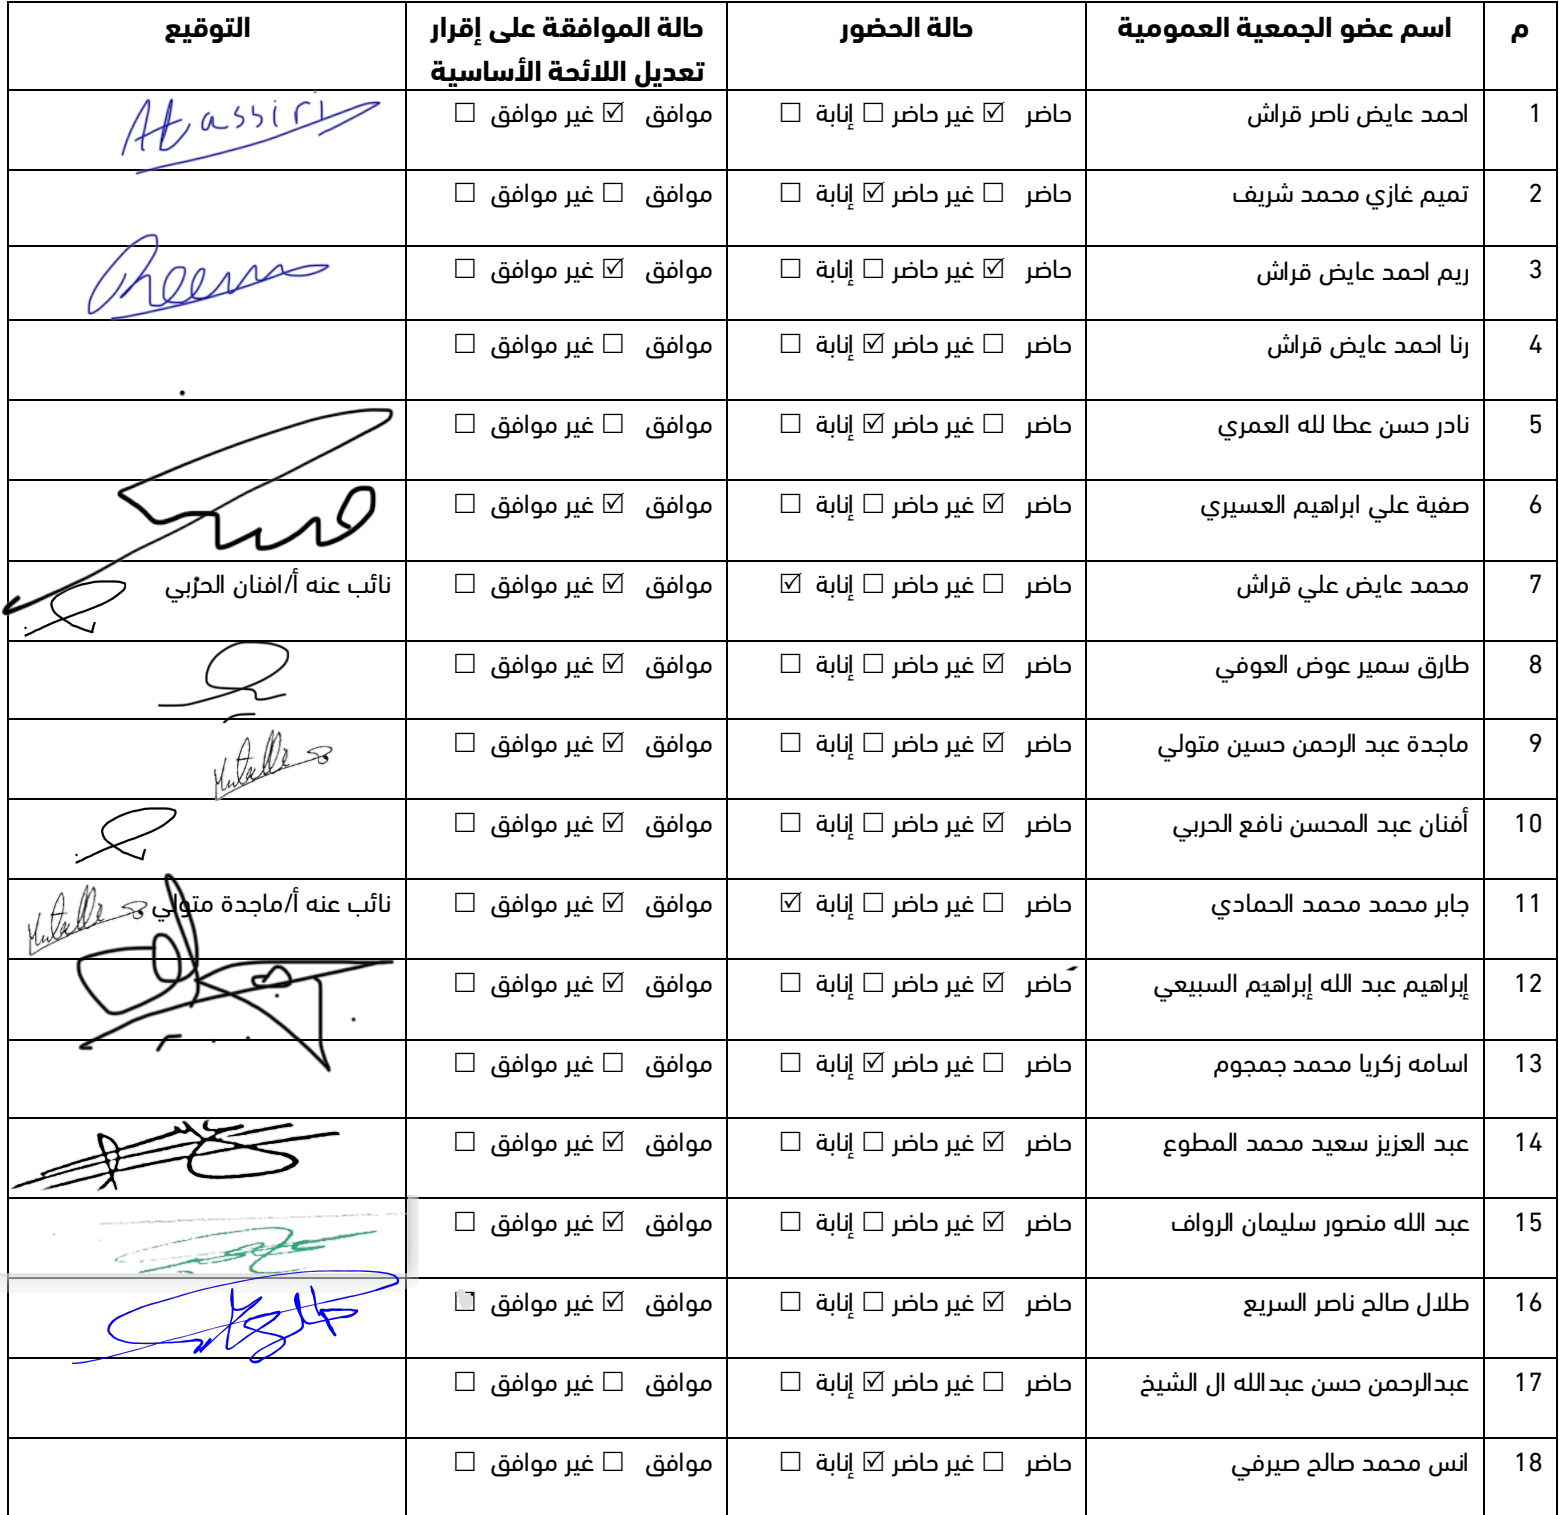 م اسم عضو الجمعية العمومية حالة الحضور حالة الموافقة على إقرار تعديل اللائحة الأساسية التوقيع
1 احمد عايض ناصر قراش حاضر ☑ غير حاضر ☐ إنابة ☐ موافق ☑ غير موافق ☐ Atassiri
2 تميم غازي محمد شريف حاضر ☐ غير حاضر ☑ إنابة ☐ موافق ☐ غير موافق ☐
3 ريم احمد عايض قراش حاضر ☑ غير حاضر ☐ إنابة ☐ موافق ☑ غير موافق ☐ Reem
4 رنا احمد عايض قراش حاضر ☐ غير حاضر ☑ إنابة ☐ موافق ☐ غير موافق ☐
5 نادر حسن عطا لله العمري حاضر ☐ غير حاضر ☑ إنابة ☐ موافق ☐ غير موافق ☐
6 صفية علي ابراهيم العسيري حاضر ☑ غير حاضر ☐ إنابة ☐ موافق ☑ غير موافق ☐
7 محمد عايض علي قراش حاضر ☐ غير حاضر ☐ إنابة ☑ موافق ☑ غير موافق ☐ نائب عنه أ/افنان الحربي
8 طارق سمير عوض العوفي حاضر ☑ غير حاضر ☐ إنابة ☐ موافق ☑ غير موافق ☐
9 ماجدة عبد الرحمن حسين متولي حاضر ☑ غير حاضر ☐ إنابة ☐ موافق ☑ غير موافق ☐
10 أفنان عبد المحسن نافع الحربي حاضر ☑ غير حاضر ☐ إنابة ☐ موافق ☑ غير موافق ☐
11 جابر محمد محمد الحمادي حاضر ☐ غير حاضر ☐ إنابة ☑ موافق ☑ غير موافق ☐ نائب عنه أ/ماجدة متولي
12 إبراهيم عبد الله إبراهيم السبيعي حاضر ☑ غير حاضر ☐ إنابة ☐ موافق ☑ غير موافق ☐
13 اسامه زكريا محمد جمجوم حاضر ☐ غير حاضر ☑ إنابة ☐ موافق ☐ غير موافق ☐
14 عبد العزيز سعيد محمد المطوع حاضر ☑ غير حاضر ☐ إنابة ☐ موافق ☑ غير موافق ☐
15 عبد الله منصور سليمان الرواف حاضر ☑ غير حاضر ☐ إنابة ☐ موافق ☑ غير موافق ☐
16 طلال صالح ناصر السريع حاضر ☑ غير حاضر ☐ إنابة ☐ موافق ☑ غير موافق ☐
17 عبدالرحمن حسن عبدالله ال الشيخ حاضر ☐ غير حاضر ☑ إنابة ☐ موافق ☐ غير موافق ☐
18 انس محمد صالح صيرفي حاضر ☐ غير حاضر ☑ إنابة ☐ موافق ☐ غير موافق ☐